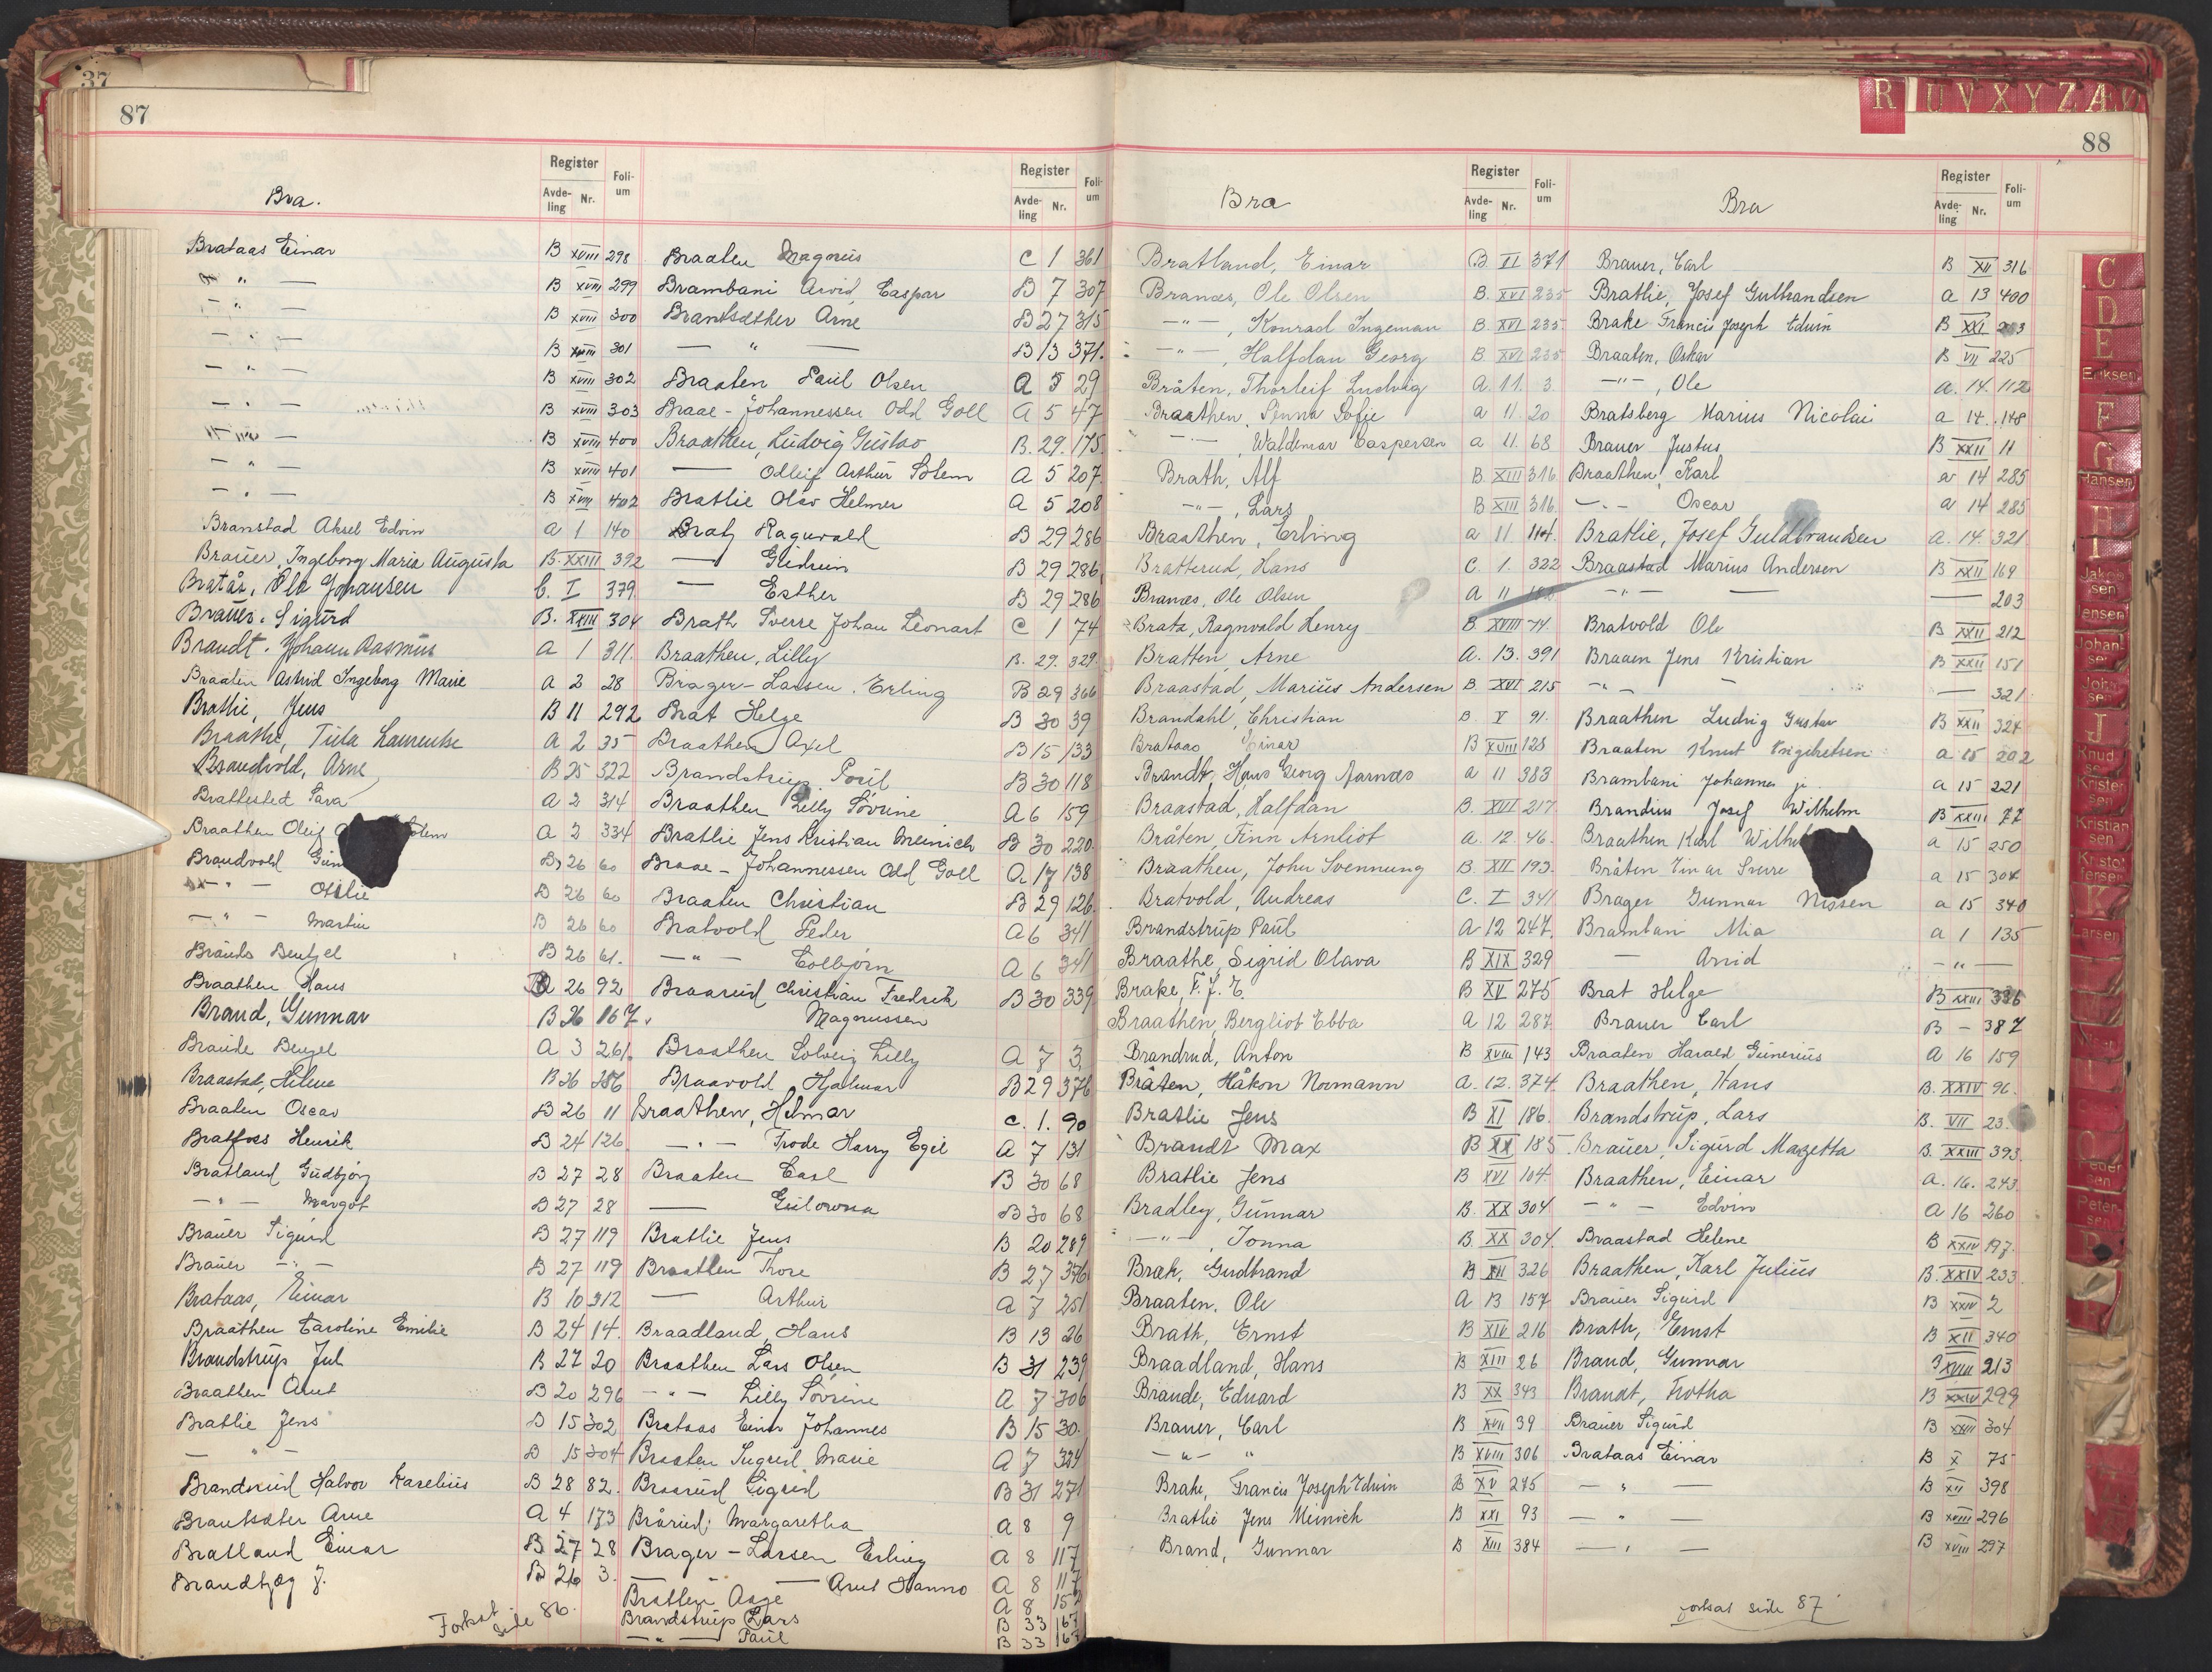 37
87
Register
Avde-
ling
Nr.
Foli-
um
Register
Avde-
ling
Nr.
Foli-
um
Bra.
Brataas Einar B XVIII 298
" B XVIII 299
- " - B XVIII 300
- " - B XVIII 301
- " - B XVIII 302
- " - B XVIII 303
- " - B XVIII 400
- " - B XVIII 401
- " - B XVIII 402
Branstad Aksel Edvin a 1 140
Brauer, Ingeborg Maria Augusta B. XXIII 392
Bratås, Ole Johansen C. I 379
Brauer. Sigurd B. XXIII 304
Brandt. Johann Rasmus A 1 311.
Braaten Astrid Ingeborg Marie A 2 28
Bratlie, Jens B 11 292
Braathe, Tula Laurentse A 2 35
Brandvold, Arne B 25 322
Brattested Sara A 2 314
Braathen Oleif A 2 334
Brandvold B 26 60
- " - Otilie B 26 60
- " - Martin B 26 60
Braude Bentzel B 26 61.
Braathen Hans 26 92
Brand, Gunnar B 26 167.
Braude Bengel A 3 261
Braastad, Helene B 26 256
Braaten Oscar B 26 11
Bratfoss Henrik B 24 126
Bratland Gudbjør B 27 28
- " - Margot B 27 28
Brauer Sigurd B 27 119
Brauer - " - B 27 119
Brataas, Einar B 10 312
Braathen Caroline Emilie B 24 14.
Brandstrup Jul B 27 20
Braathen Arnt B 20 296
Bratlie Jens B 15 302
- " - B 15 304
Brandsrud Halvor Karelius B 28 82.
Brantsæter Arne A 4 173
Bratland Einar B 27 28
Brandbjæg J. B 26 3.
Forksat side 86.
Braaten Magnus C 1 361
Brambani Arvid, Caspar B 7 307
Brantsæther Arne B 27 315
- " - B 13 371.
Braaten Paul Olsen A 5 29
Braae - Johannessen Odd Goll A 5 47
Braathen, Ludvig Gustav B. 29. 175.
— Olleif Arthur Holem A 5 207.
Bratlie Olav Helmer A 5 208
Bratz Ragnvald B 29 286
— Gudrun B 29 286
— Esther B 29 286
Brath Sverre Johan Leonart C 1 74
Braathen, Lilly B. 29. 329.
Brager-Larsen. Erling B 29 366
Brat Helge B 30 39
Braathen Axel B 15 133
Brandstrup Poul B 30 118
Braathen Lilly Sovrine A 6 159
Bratlie Jens Kristian Meinich B 30 220.
Braae - Johannessen Odd Goll A 17 138
Braaten Christian B 29 126.
Bratvold Peder A 6 341
- " - Colbjørn A 6 341
Braarud Christian Fredrik B 30 339
Magnussen
Braathen Solveig Lilly A 7 3
Braavold Hjalmar B 29 376
Braathen, Helmar C. 1. 90
- " - Frode Harry Egil A 7 131
Braaten Carl B 30 68
— Gulowna B 30 68
Bratlie Jens B 20 289
Braathen Thore B 27 376
— Arthur A 7 251
Braadland, Hans B 13 26
Braathen Lars Olsen B 31 239
- " - Lilly Sovrine A 7 306
Brataas Einar Johannes B 15 30.
Braaten Ingrid Marie A 7 324
Braarud Sigrid B 31 271
Brårud, Margaretha A 8 9
Brager - Larsen Erling A 8 117
— Arnt Hanno A 8 117
Bratlien Aage A 8 152
Brandstrup Lars B 33 167
- " - Paul B 33 167
R U V X Y Z Æ Ø
88
Register
Avde-
ling
Nr.
Foli-
um
Register
Avde-
ling
Nr.
Foli-
um
Bra
Bra
Bratland, Einar B. VI 371
Branæs, Ole Olsen B. XVI 235
- " - , Konrad Ingeman B. XVI 235
- " - , Halfdan Georg B. XVI 235
Bråten, Thorleif Ludvig a. 11. 3.
Braathen, Anna Sofie a 11 20
- " - , Waldemar Caspersen a 11. 68
Brath, Alf B. XIII 316
- " - , Lars B XIII 316.
Braathen, Erling a 11 104.
Bratterud, Hans C. 1. 322
Branæs, Ole Olsen a 11
Brata, Ragnvald Henry B. XVIII 74.
Bratten, Arne a. 13. 391
Braastad, Marius Andersen B. XVI 215
Brandahl, Christian B. V 91.
Brataas, Einar B XVIII 128
Brandt, Hans Georg Aarnæs a 11 383
Braastad, Halfdan B. XVI 217
Bråten, Finn Arnliot a. 12. 46.
Braathen, John Svennung B. XII 193.
Bratvold, Andreas C. I 341
Brandstrup Paul A 12 247.
Braathe, Sigrid Olava B XIX 329
Brake, F. J. E. B XV 275
Braathen, Bergliot Ebba a 12 287
Brandrud, Anton B XVIII 143
Bråten, Håkon Normann a. 12. 374.
Bratlie Jens B XI 186.
Brandt Max B XX 185
Bratlie Jens B XVI 104.
Bradley, Gunnar B. XX 304
- " - , Jonna B. XX 304.
Bræk, Gudbrand B XII 326
Braaten, Ole A 13 157
Brath, Ernst B XIV 216
Braadland, Hans B XIII 26
Braude, Eduard B XX 343
Brauer, Carl B XVII 39
- " - " B XVIII 306
Brake, Francis Joseph Edwin B XV 275
Bratlie Jens Meinich B XXI 93
Brand, Gunnar B XIII 384
Brauer, Carl B XII 316
Bratlie, Josef Gulbrandsen a 13 400
Brake Francis Joseph Edwin B XXI 203
Braaten, Oskar B VII 225
- " - , Ole a. 14. 112
Bratsberg Marius Nicolai a 14. 148
Brauer Justus B XXII 11
Braathen, Karl a 14 285
- " - Oscar a 14 285
Bratlie, Josef Guldbrandsen a. 14. 321
Braastad Marius Andersen B XXII 169
- " - — 203
Bratvold Ole B XXII 212
Braaen Jens Kristian B XXII 151
- " - — 321
Braathen Ludvig Gustav B XXII 324
Braaten Knut Engebretsen a 15 202
Brambani Johannes jr. a 15 221
Brandius Josef Wilhelm B XXIII 77
Braathen Karl a 15 250
Bråten Einar Sverre a 15 304
Brager Gunnar Nissen a 15 340
Brambani Mia a 1 135
— Arvid - " -
Brat Helge B XXIII 336
Brauer Carl B - 387
Braaten Harald Gunerius A 16 159
Braathen, Hans B. XXIV 96.
Brandstrup, Lars B. VII 23.
Brauer, Sigurd Mazetta B. XXIII 393.
Braathen, Einar a. 16. 243.
- " - Edvin a 16 260
Braastad Helene B XXIV 197.
Braathen, Karl Julius B. XXIV 233.
Brauer Sigurd B XXIV 2
Brath, Ernst B XII 340
Brand, Gunnar XVIII 213
Brandt, Trotha B XXIV 299
Brauer Sigurd B XXIII 304
Brataas Einar B X 75
- " - B XII 398
- " - B XVIII 296
- " - B XVIII 297
fortsat side 87
C
D
E
Eriksen
F
G
Hansen
H
I
Jakob
sen
Jensen
Johan-
sen
Joh
sen
J
Knud
se
Krister
sen
Kristian
sen
Kristof
fersen
K
Larsen
L
O
Peder
sen
Peter-
sen
R